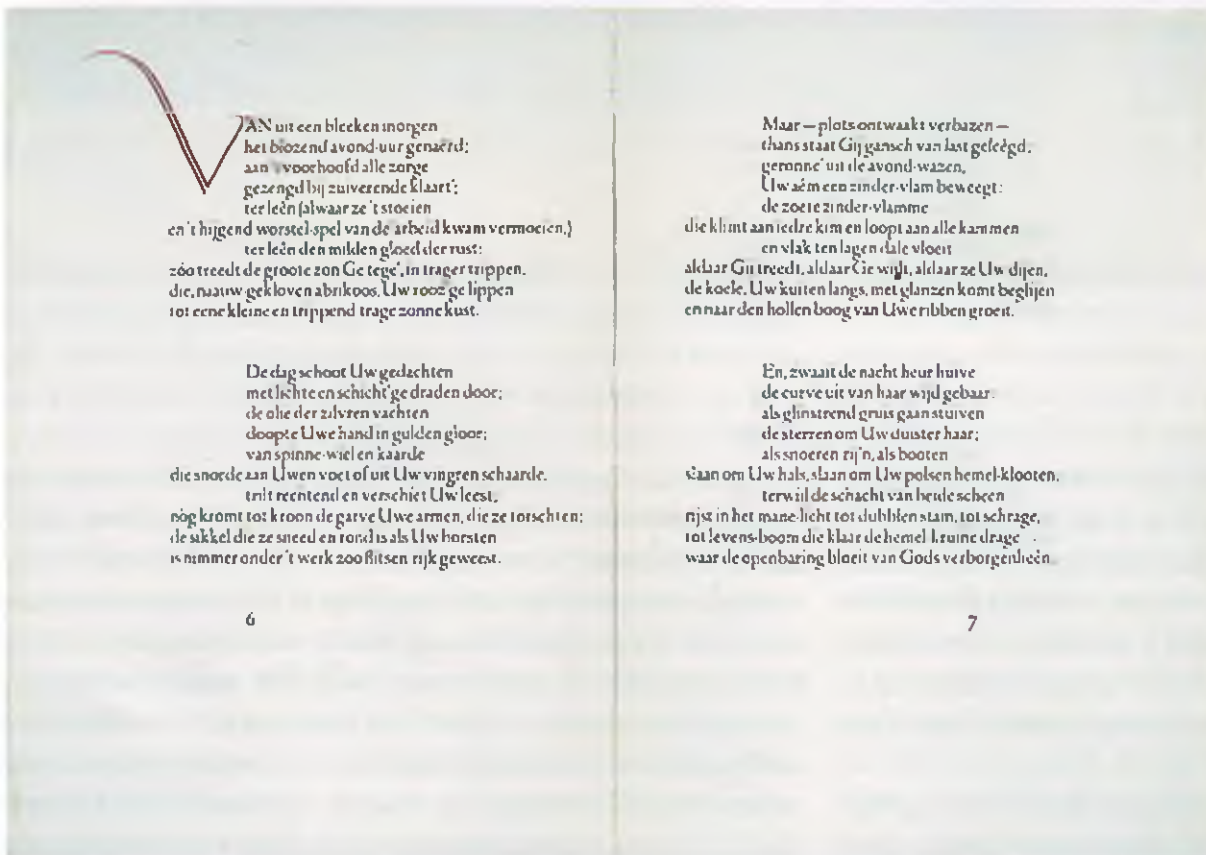 VAN uit een bleeken morgen
het blozend avond-uur genaerd;
aan 't voorhoofd alle zorge
gezengd bij zuiverende klaart';
ter leên (alwaar ze 't stoeien
en 't hijgend worstel-spel van de arbeid kwam vermoeien,)
ter leên den milden gloed der rust:
zóo treedt de groote zon Ge tege', in trager trippen,
die, nauw-gekloven abrikoos, Uw rooz'ge lippen
tot eene kleine en trippend trage zonne kust.
De dag schoot Uw gedachten
met lichte en schicht'ge draden door;
de olie der zilvren vachten
doopte Uwe hand in gulden gloor;
van spinne-wiel en kaarde
die snorde aan Uwen voet of uit Uw vingren schaarde,
trilt rechtend en verschiet Uw leest;
nog kromt tot kroon de garve Uwe armen, die ze torschten;
de sikkel die ze sneed en rond is als Uw borsten
is nimmer onder 't werk zoo flitsen-rijk geweest.
6
Maar — plots ontwaakt verbazen —
thans staat Gij gansch van last geleêgd;
geronne' uit de avond-wazen,
Uw aêm een zinder-vlam beweegt:
de zoete zinder-vlamme
die klimt aan iedre kim en loopt aan alle kammen
en vlak ten lagen dale vloeit
aldaar Gij treedt, aldaar Ge wijlt, aldaar ze Uw dijen,
de koele, Uw kuiten langs, met glanzen komt beglijen
en naar den hollen boog van Uwe ribben groeit.
En, zwaait de nacht heur huive
de curve uit van haar wijd gebaar:
als glinstrend gruis gaan stuiven
de sterren om Uw duister haar;
als snoeren rij'n, als booten
slaan om Uw hals, slaan om Uw polsen hemel-klooten,
terwijl de schacht van beide scheen
rijst in het mane-licht tot dubblen stam, tot schrage,
tot levens-boom die klaar de hemel-kruine drage
waar de openbaring bloeit van Gods verborgenheên.
7